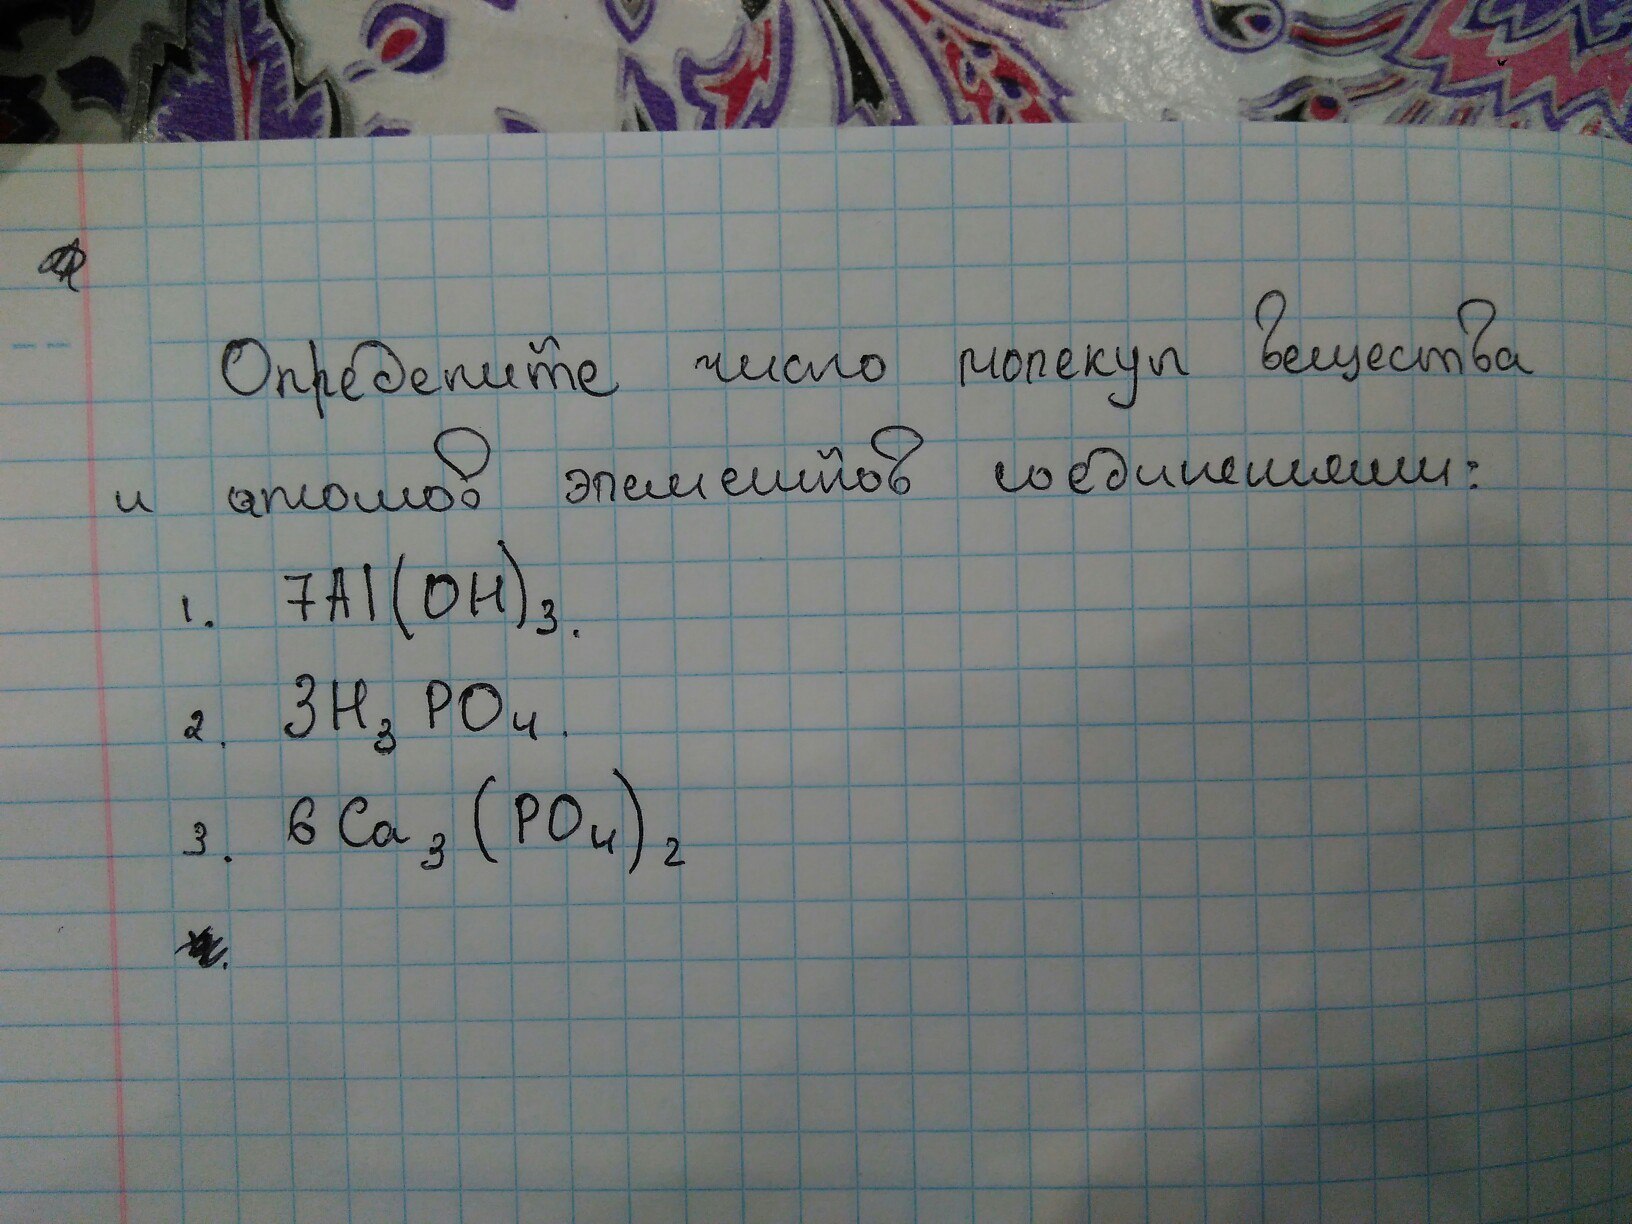 Определите число молекул вещества
и атомов элементов соединениями:
1. 7Al(OH)₃.
2. 3H₃PO₄.
3. 6Ca₃(PO₄)₂